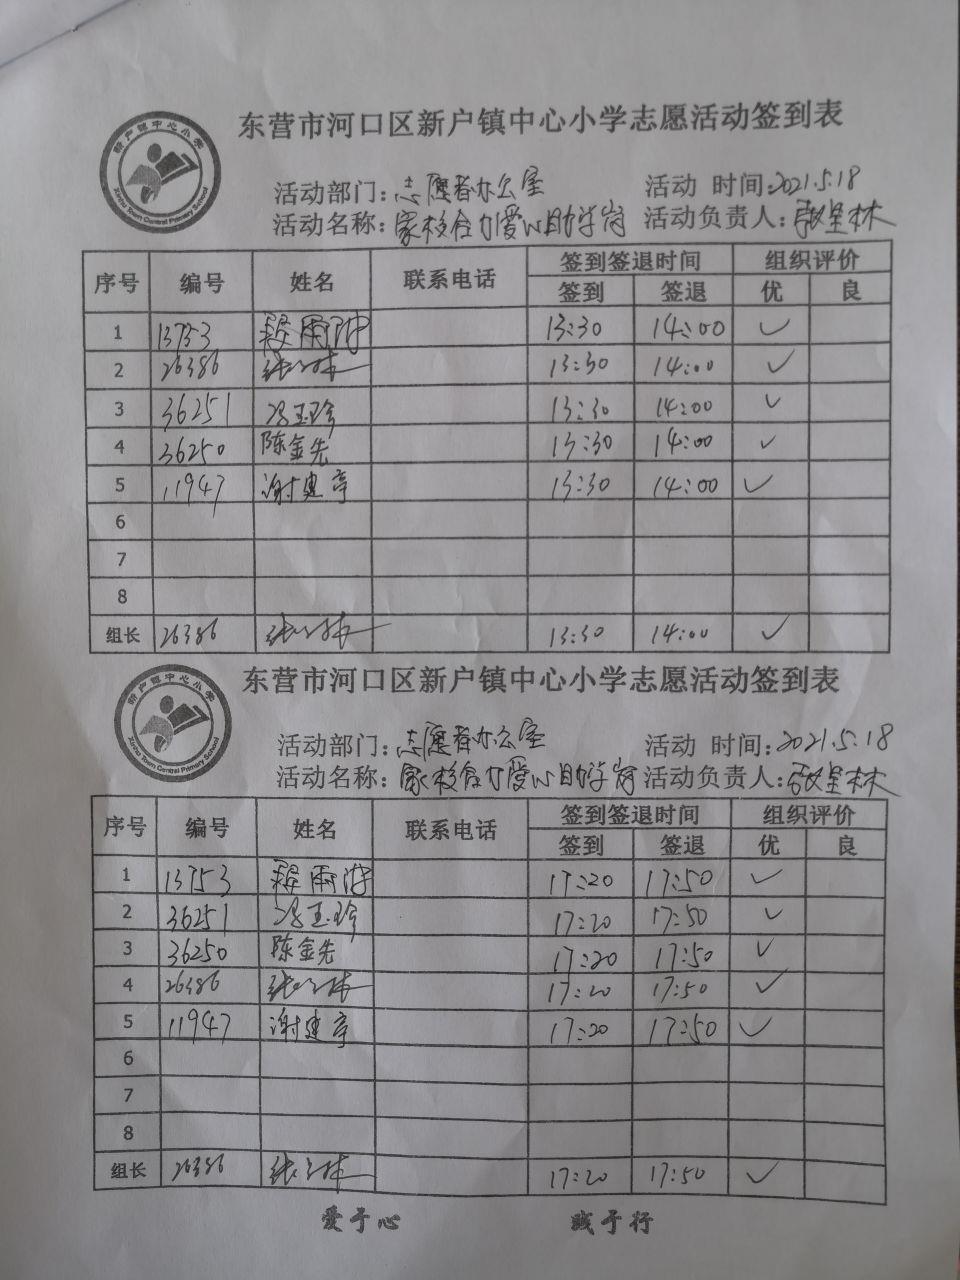 新户镇中心小学
Xinhu Town Central Primary School
东营市河口区新户镇中心小学志愿活动签到表
活动部门：志愿者办公室 活动 时间：2021.5.18
活动名称：家校合力爱心助学岗 活动负责人：
序号 编号 姓名 联系电话 签到签退时间 组织评价
签到 签退 优 良
1 13753 13:30 14:00 ✓
2 26386 13:30 14:00 ✓
3 36251 冯玉珍 13:30 14:00 ✓
4 36250 陈金先 13:30 14:00 ✓
5 11947 谢建亭 13:30 14:00 ✓
6
7
8
组长 26386 13:30 14:00 ✓
新户镇中心小学
Xinhu Town Central Primary School
东营市河口区新户镇中心小学志愿活动签到表
活动部门：志愿者办公室 活动 时间：2021.5.18
活动名称：家校合力爱心助学岗 活动负责人：
序号 编号 姓名 联系电话 签到签退时间 组织评价
签到 签退 优 良
1 13753 17:20 17:50 ✓
2 36251 冯玉珍 17:20 17:50 ✓
3 36250 陈金先 17:20 17:50 ✓
4 26386 17:20 17:50 ✓
5 11947 谢建亭 17:20 17:50 ✓
6
7
8
组长 26386 17:20 17:50 ✓
爱于心 践于行